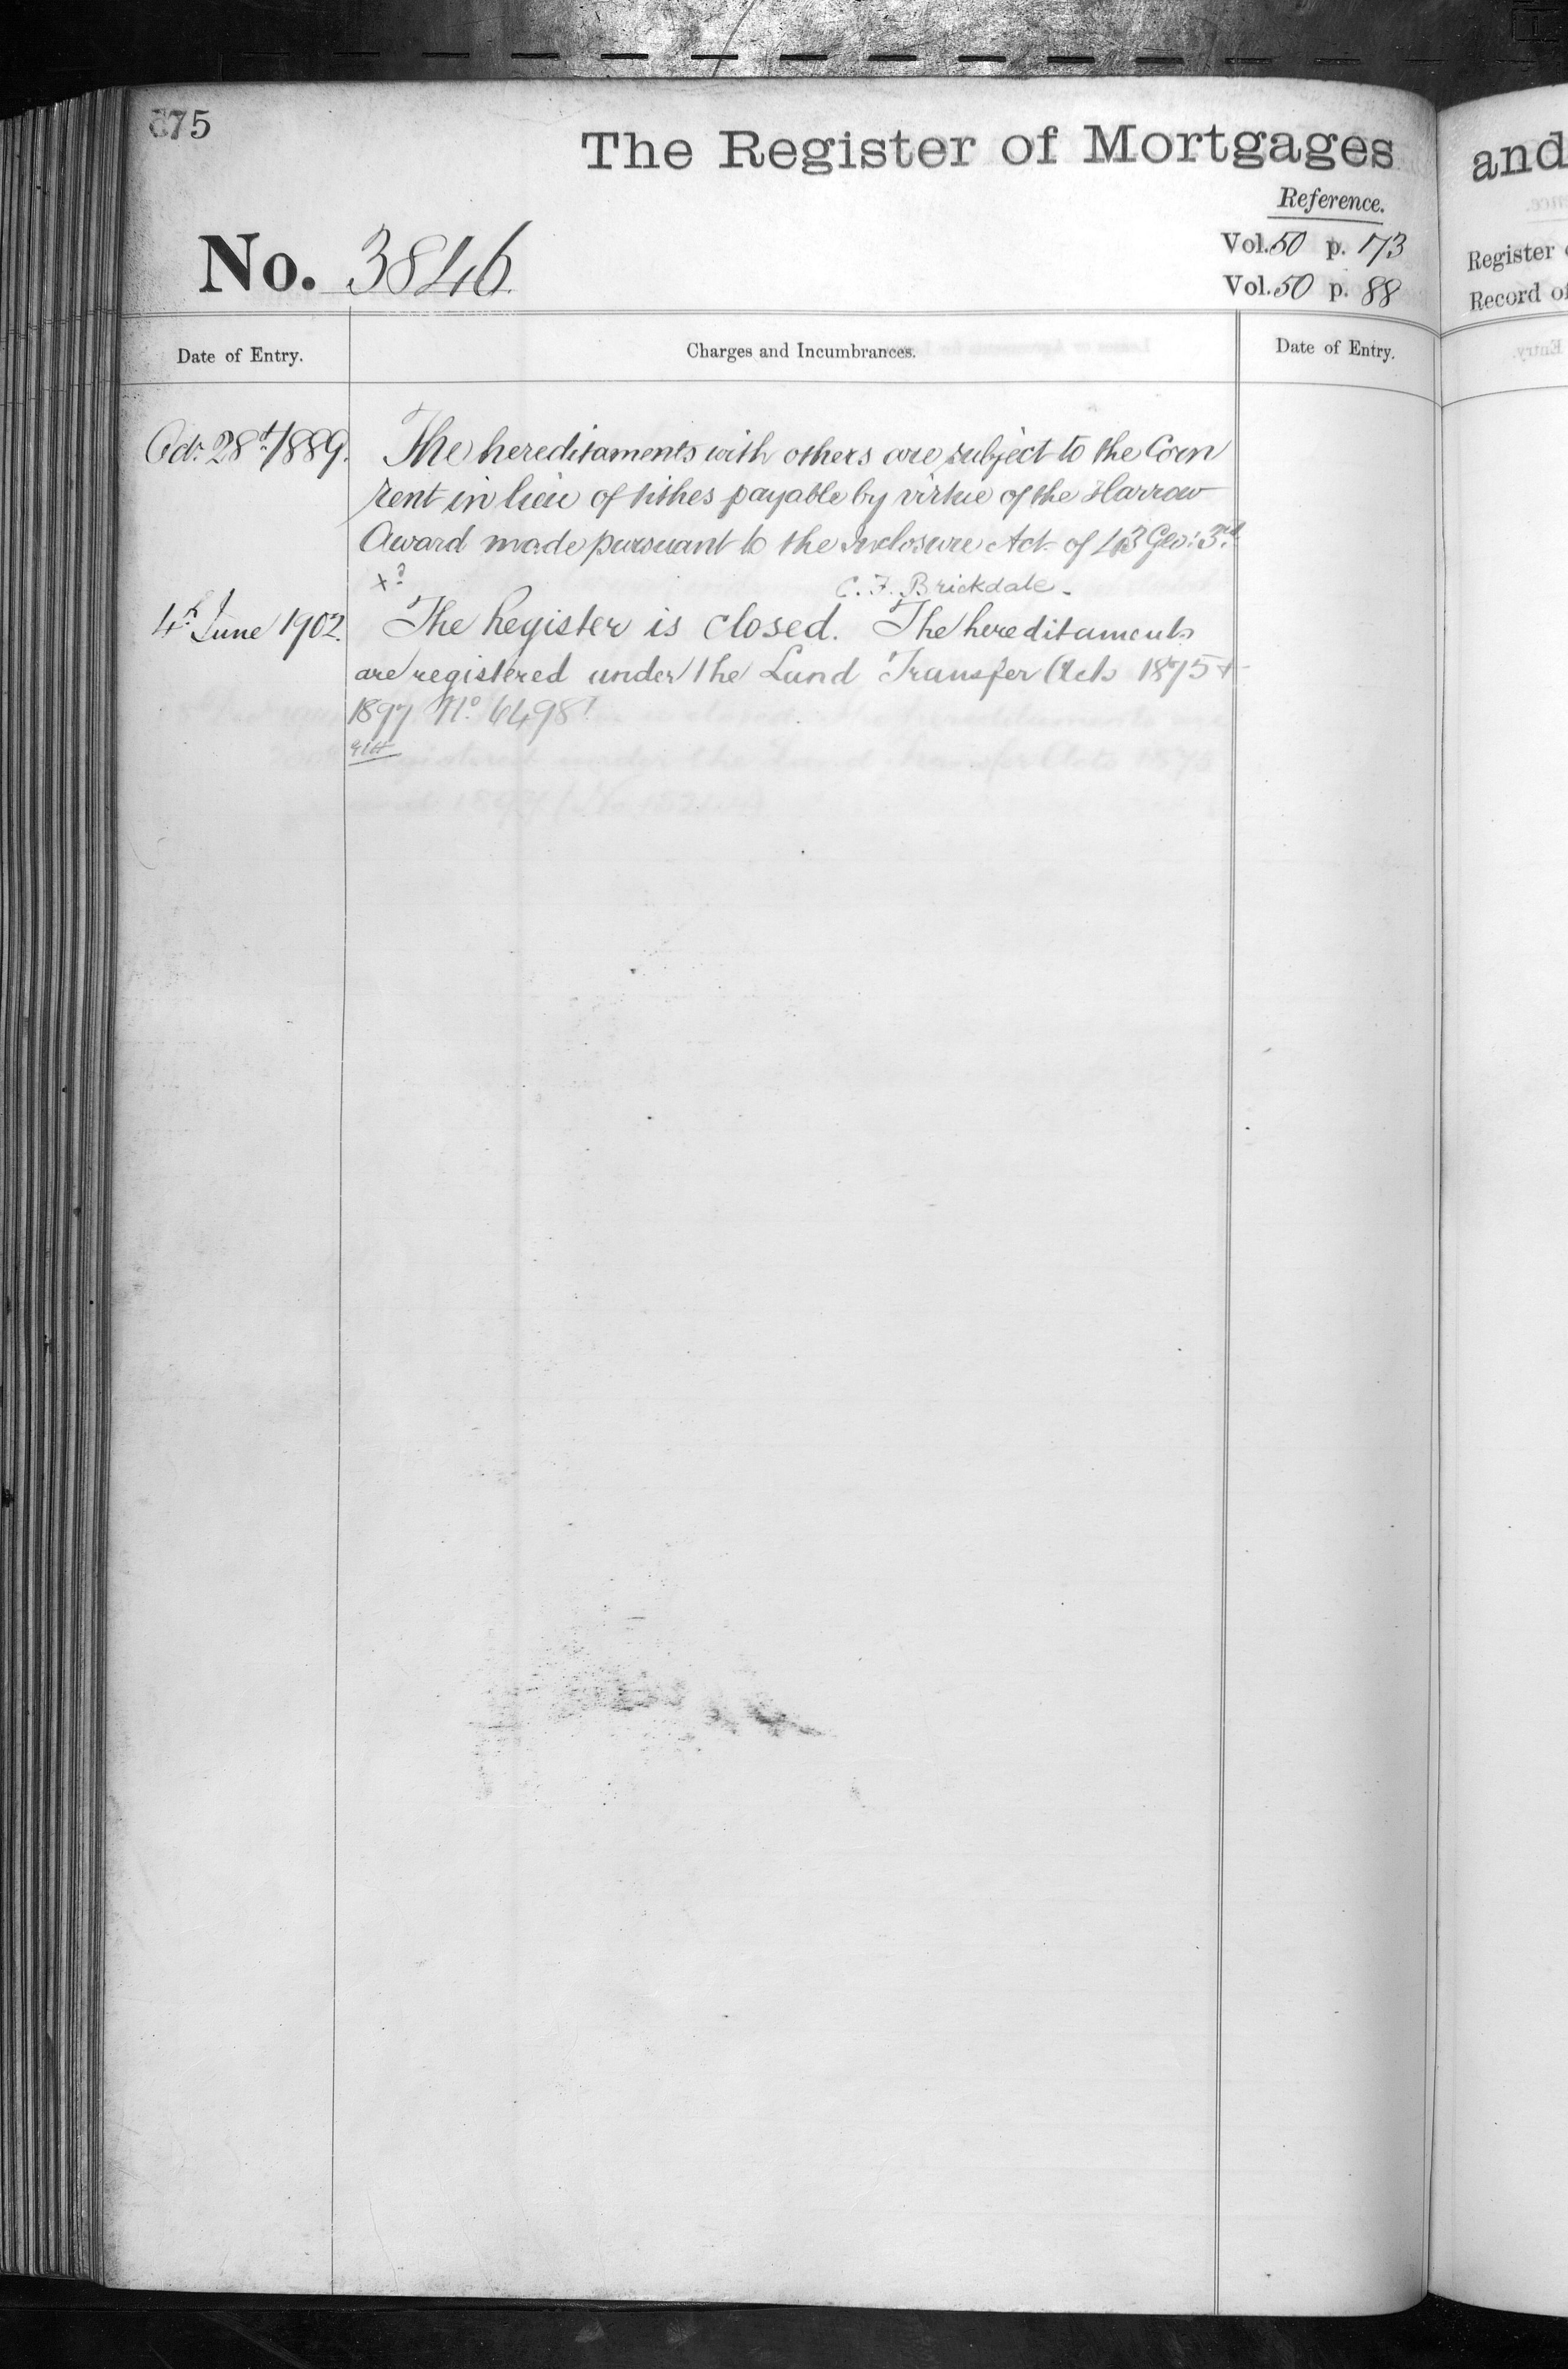 675
The Register of Mortgages
Reference.
No. 3846.
Vol. 50 p. 173
Vol. 50 p. 88
Date of Entry.
Charges and Incumbrances.
Date of Entry.
Oct: 28th 1889.
The hereditaments with others are subject to the Corn
rent in lieu of tithes payable by virtue of the Harrow
Award made pursuant to the Inclosure Act of 43 Geo: 3rd
C. F. Brickdale.
4th June 1902.
The Register is closed. The hereditaments
are registered under the Land Transfer Acts 1875 +
1897 No. 64981
and
Register
Record of